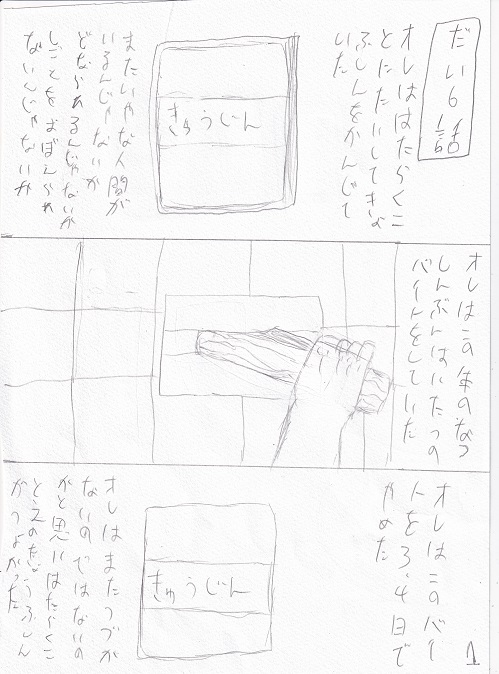 だい61話
オレははたらくこ
とにたいしてきょ
ふしんをかんじて
いた
きゅうじん
またいやな人間が
いるんじゃないか
どなられるんじゃないか
しごとをおぼえられ
ないんじゃないか
オレはこの年のなつ
しんぶんはいたつの
バイトをしていた
オレはこのバイ
トを3、4日で
やめた
きゅうじん
オレはまたつづか
ないのではないの
かと思いはたらくこ
とえのきょうふしん
がつよかった
1